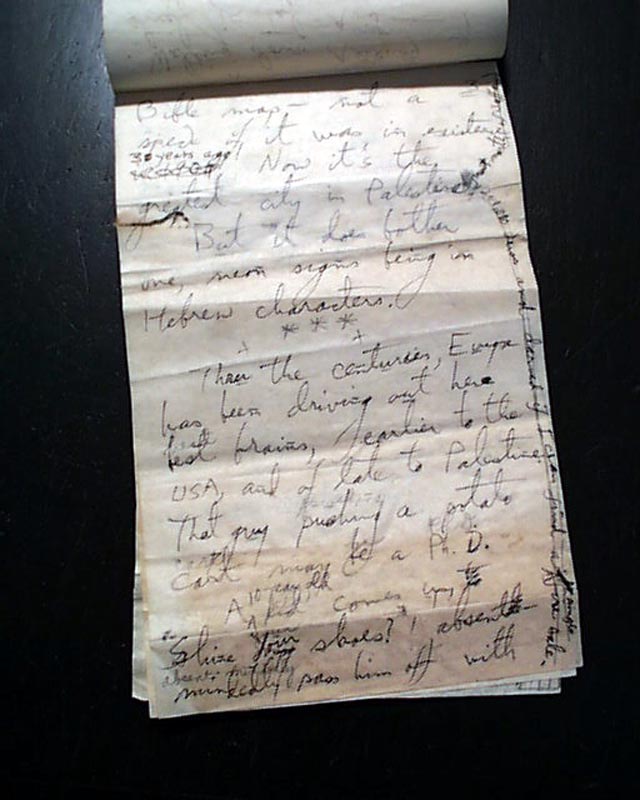 Bible map – not a
speck of it was in existence
30 years ago! Now it's the
greatest city in Palestine.
But it does bother
one, neon signs being in
Hebrew characters.
* * *
Thru the centuries, Europe
has been driving out her
best brains, earlier to the
USA, and of late to Palestine.
That guy pushing a potato
cart may be a Ph.D.
A 10 year old
kid comes up, to
Shine your shoes? I absent-
absent mindedly
mindedly pass him off with